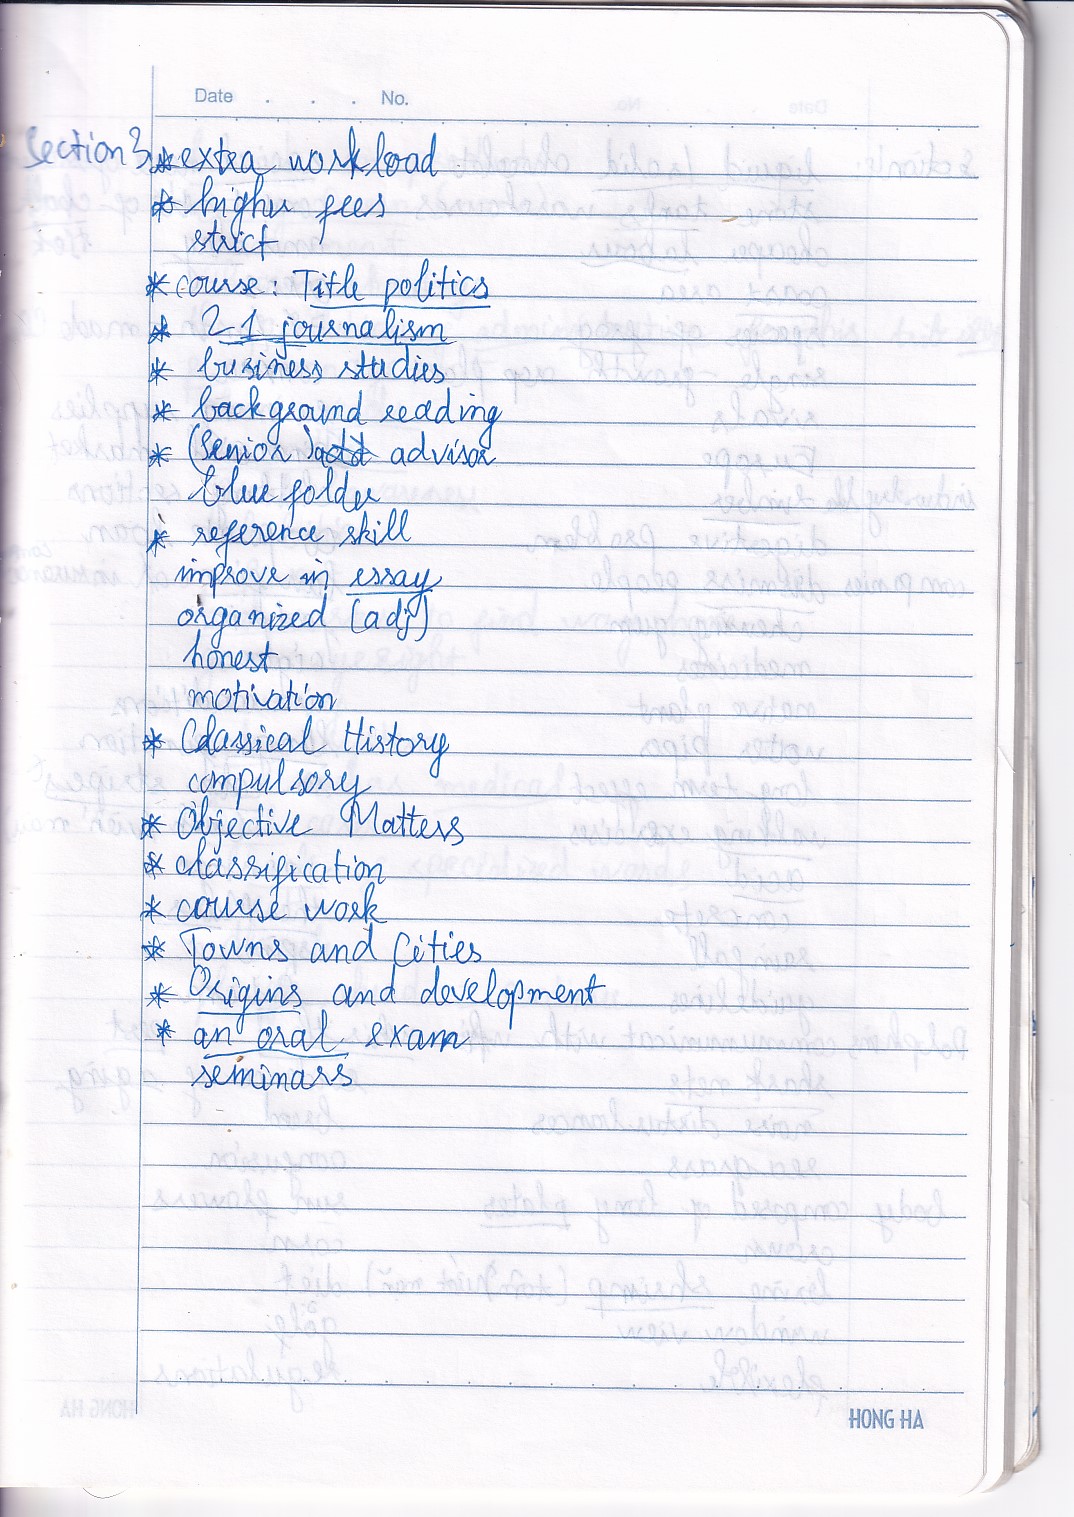 Date . . . No.
Section 3 * extra workload
* higher fees
strict
* course: Title politics
* 21 journalism
* business studies
* background reading
* (Senior) advisor
blue folder
* reference skill
improve in essay
organized (adj)
honest
motivation
* Classical History
compulsory
* Objective Matters
* classification
* course work
* Towns and Cities
* Origins and development
* an oral exam
seminars
HONG HA